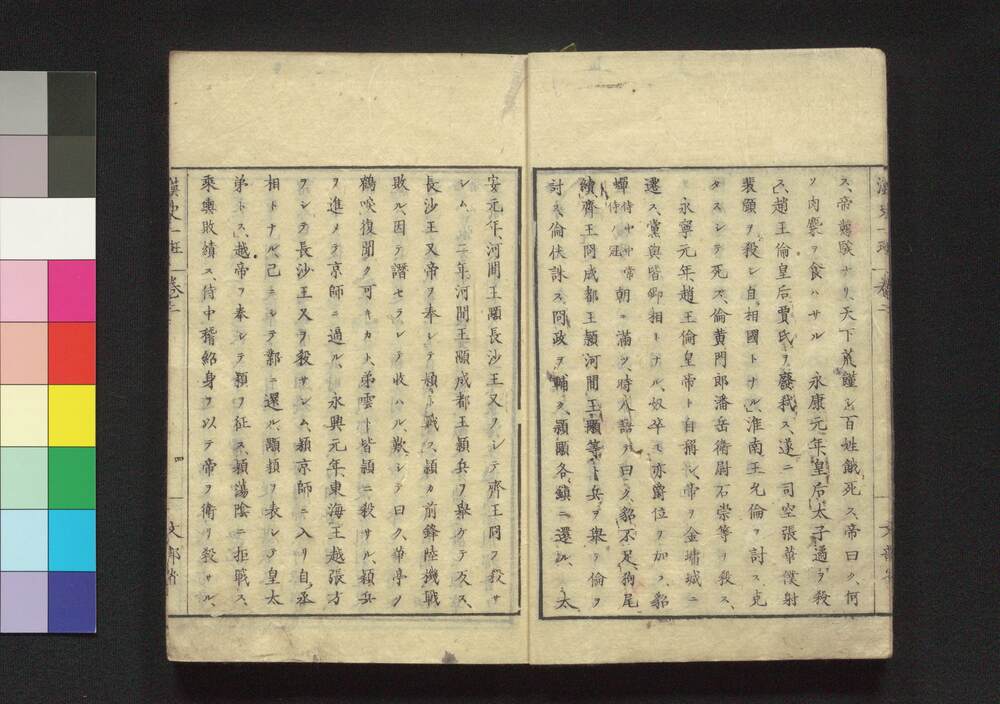 ス、帝騃ナリ、天下荒饉シ百姓餓死ス、帝曰ク、何
ソ肉糜ヲ食ハサル　永康元年皇后太子遹ヲ殺
ス、趙王倫皇后賈氏ヲ廢弒ス、遂ニ司空張華僕射
裴頠ヲ殺シ自相國トナル、淮南王允倫ヲ討ス、克
タスシテ死ス、倫黄門郎潘岳衛尉石崇等ヲ殺ス、
永寧元年趙王倫皇帝ト自稱シ、帝ヲ金墉城ニ
遷ス、黨與皆卿相トナル、奴卒モ亦爵位ヲ加フ、貂
蟬侍中中常侍ハ冠朝ニ滿ツ、時人語テ曰ク、貂不足狗尾
續齊王冏成都王穎河間王顒等ト兵ヲ舉テ倫ヲ
討ス、倫伏誅ス、冏政ヲ輔ク、穎顒各鎮ニ還ル、　太
安元年、河間王顒長沙王乂ヲシテ齊王冏ヲ殺サ
シム、　二年河間王顒成都王穎兵ヲ舉ケテ反ス、
長沙王乂帝ヲ奉シテ穎ト戰ス、穎カ前鋒陸機戰
敗ル、因テ譖セラレテ收ハル、歎シテ曰ク、華亭ノ
鶴唳復聞ク可キカト、弟雲ト皆穎ニ殺サル、穎兵
ヲ進メテ京師ニ逼ル、　永興元年、東海王越張方
ヲシテ長沙王乂ヲ殺サシム、穎京師ニ入リ自丞
相トナル、己ニシテ鄴ニ還ル、顒穎ヲ表シテ皇太
弟トス、越帝ヲ奉シテ穎ヲ征ス、穎蕩陰ニ拒戰ス、
乘輿敗績ス、侍中嵇紹身ヲ以テ帝ヲ衛リ殺サル、
漢史一班　卷三　四　文部省